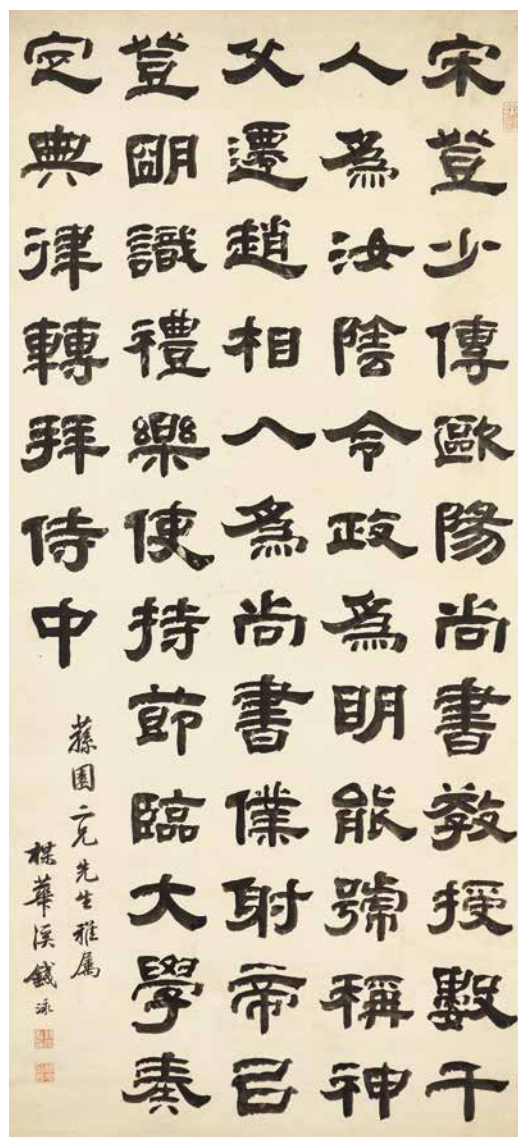 宋登少傳歐陽尚書教授數千
人爲汝陰令政爲明能號稱神
父遷趙相入爲尚書僕射帝㠯
登朙識禮樂使持節臨大學奏
定典律轉拜侍中
蓀園二兄先生雅屬
楳華溪錢泳